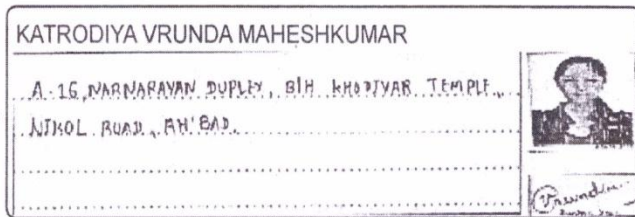 KATRODIYA VRUNDA MAHESHKUMAR
A-16, NARNARAYAN DUPLEX, B/H KHODIYAR TEMPLE,
NIKOL ROAD, AH'BAD.
Vrunda